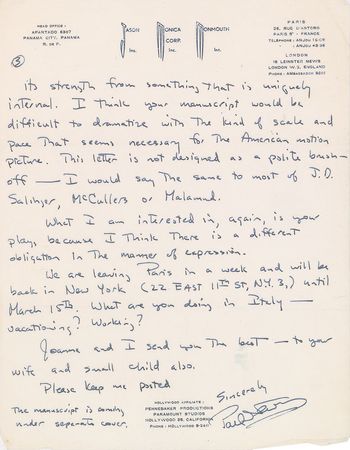 HEAD OFFICE:
APARTADO 6307
PANAMA CITY, PANAMA
R. DE P.
JASON
Inc.
MONICA
CORP.
Inc.
MONMOUTH
Inc.
PARIS
LONDON
18 LEINSTER MEWS
LONDON W.2, ENGLAND
③
its strength from something that is uniquely
internal. I think your manuscript would be
difficult to dramatize with the kind of scale and
pace that seems necessary for the American motion
picture. This letter is not designed as a polite brush-
off — I would say the same to most of J.D.
Salinger, McCullers or Malamud.
What I am interested in, again, is your
play, because I think there is a different
obligation in the manner of expression.
We are leaving Paris in a week and will be
back in New York (22 EAST 11th ST, N.Y. 3,) until
March 15th. What are you doing in Italy —
vacationing? Working?
Joanne and I send you the best — to your
wife and small child also.
Please keep me posted
Sincerely
Paul Newman
The manuscript is coming
under separate cover.
HOLLYWOOD AFFILIATE:
PENNEBAKER PRODUCTIONS
PARAMOUNT STUDIOS
HOLLYWOOD 38, CALIFORNIA